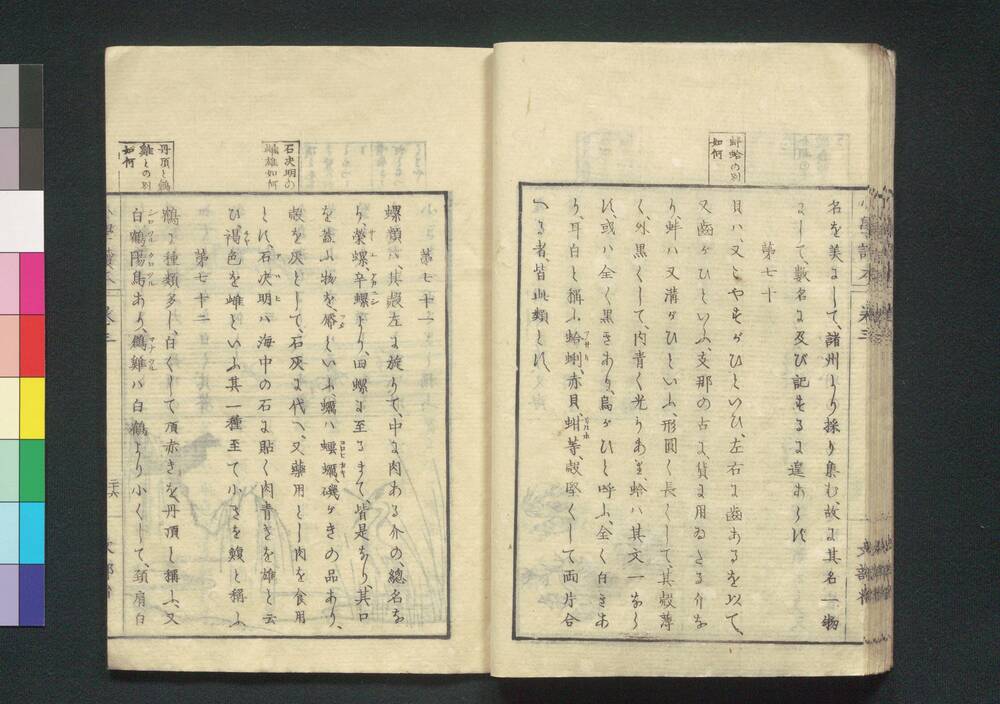 蚌蛤の別
如何
名を美にして、諸州より採り集む、故に其名一物
にして、數名に及び記するに遑あらず
第七十
貝ハ、又こやすがひといひ、左右に齒あるを以て、
又齒がひといふ、支那の古に、貨に用ゐたる介な
り、蚌ハ又溝がひといふ、形圓く長くして、其殻薄
く、外黒くして、内青く光りあり、蛤ハ其文一なら
ず、或ハ全く黒きあり、烏がひと呼ふ、全く白きあ
り、耳白と稱ふ、蛤蜊、赤貝、蚶等、殻堅くして両片合
へる者、皆此類とす、
小學讀本
卷三
石决明の
雌雄如何
丹頂と鶴
雞との別
如何
第七十一
螺類ハ、其殻左に旋りて、中に肉ある介の、總名な
り、榮螺辛螺より、田螺に至るまて、皆是なり、其口
を蓋ふ物を、厴といふ、蠣ハ、蝛蠣、磯がきの品あり、
殻を灰として、石灰に代へ、又藥用とし肉を食用
とす、石决明ハ海中の石に貼く肉青きを雄と云
ひ、褐色を雌といふ其一種至て小さきを鰒と稱ふ
第七十二
鶴に種類多し、白くして頂赤きを、丹頂と稱ふ、又
白鶴陽鳥あり、鶴雞ハ白鶴より小くして、頚肩白